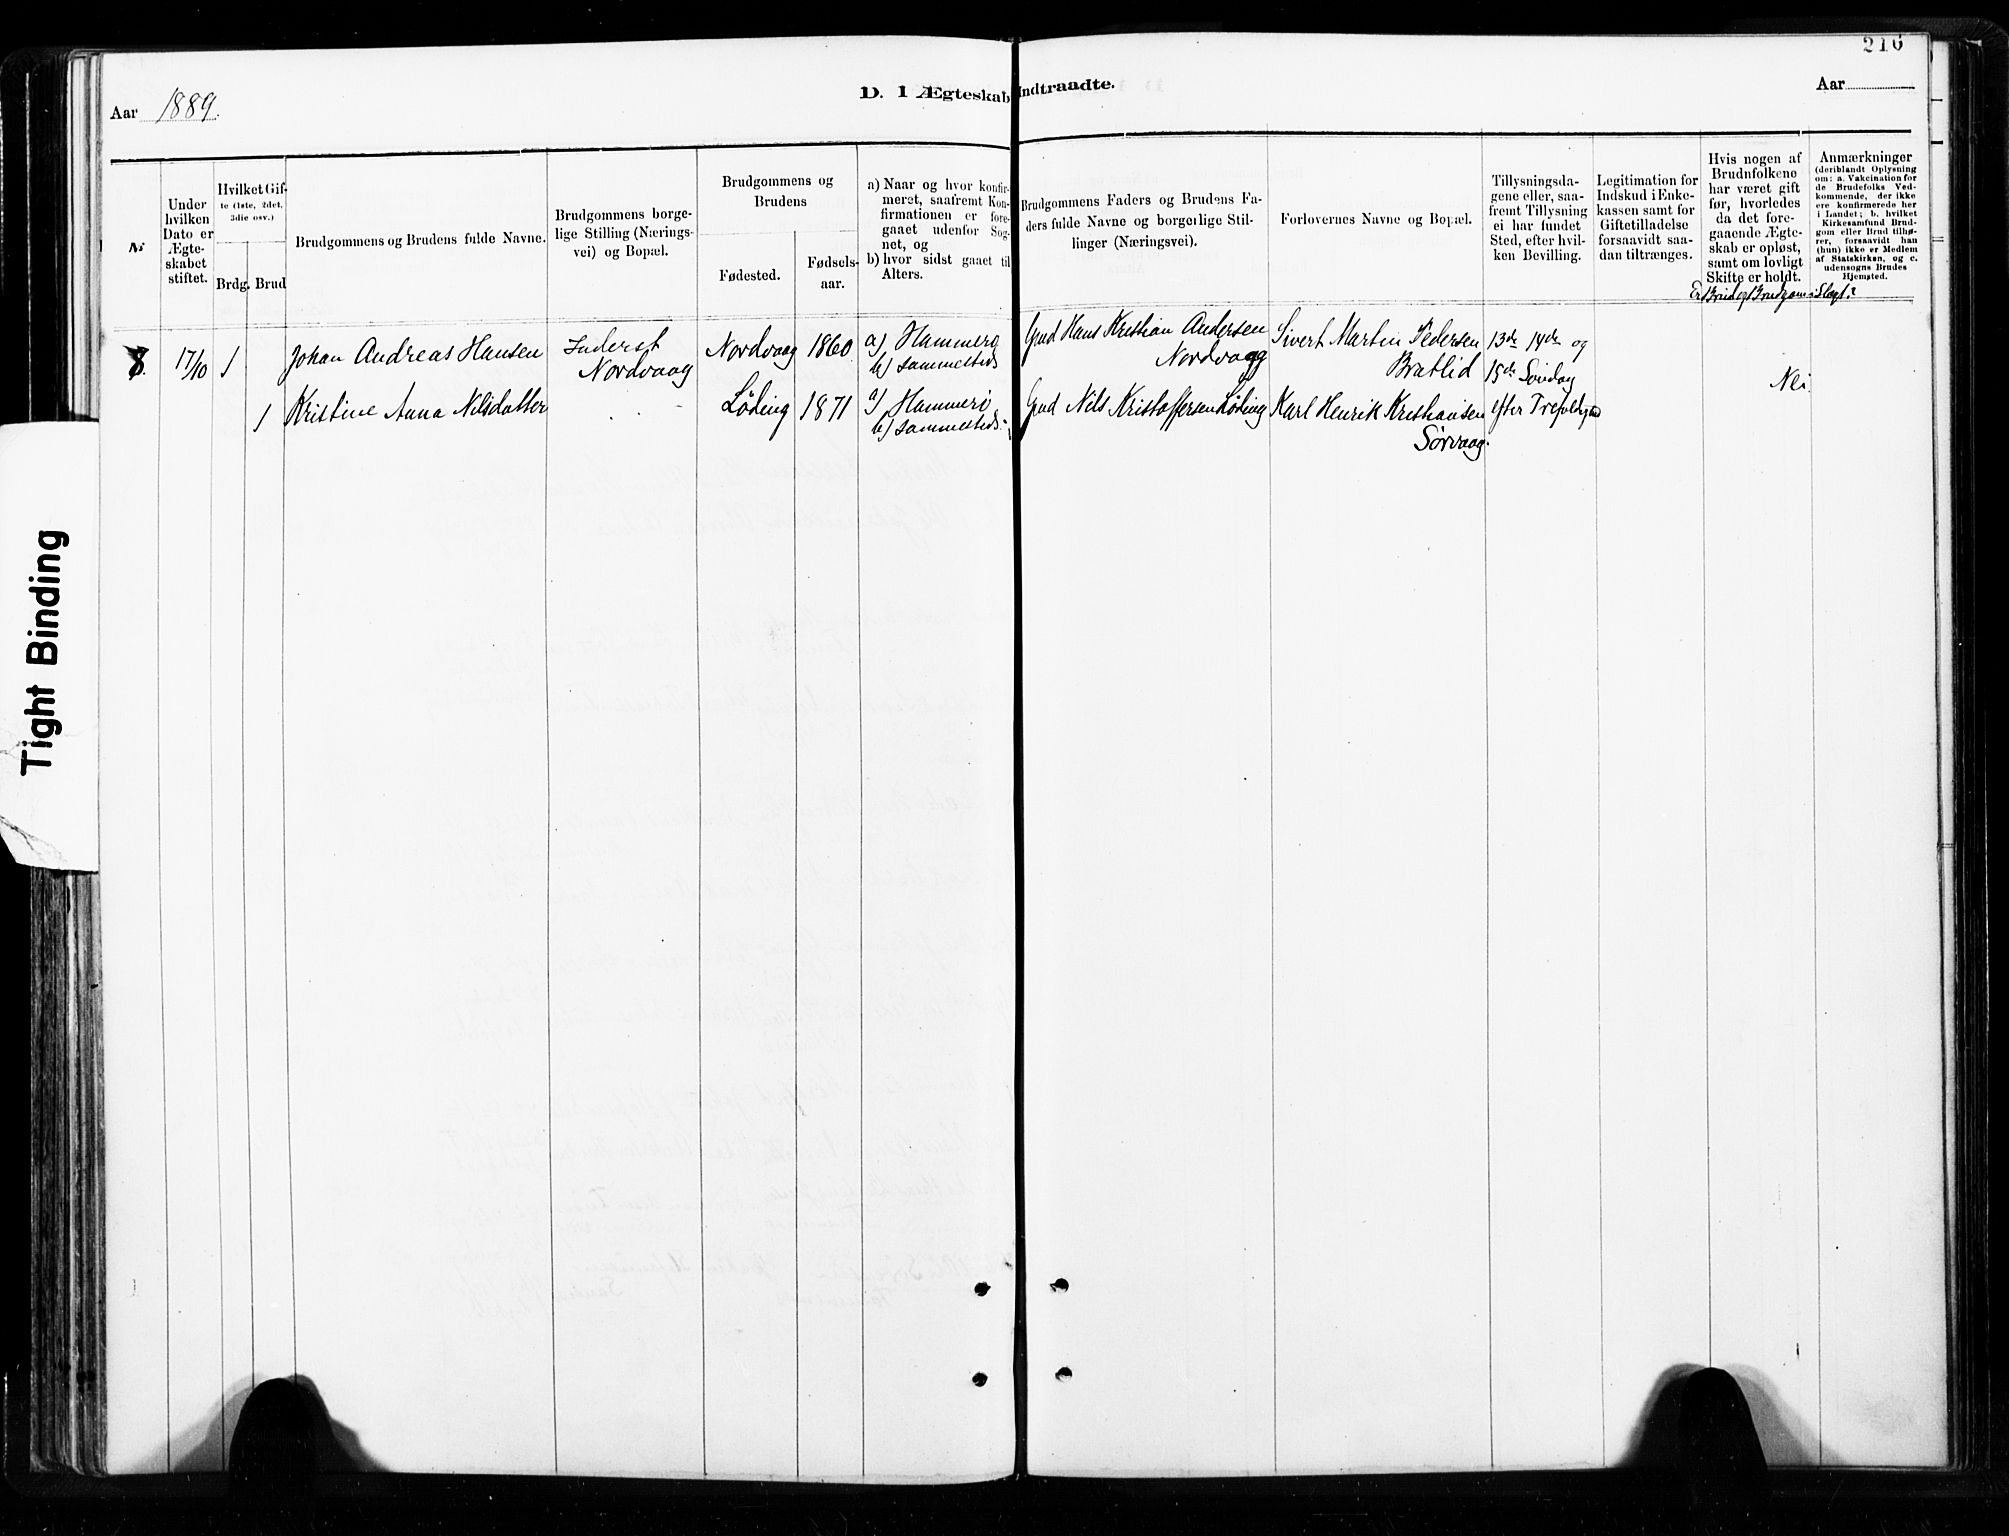 216
D. I Ægteskab Indtraadte.
Aar 1889.
Aar
№
Under hvilken Dato er Ægteskabet stiftet.
Hvilket Gifte (1ste, 2det, 3die osv.)
Brdg. Brud
Brudgommens og Brudens fulde Navne.
Brudgommens borgelige Stilling (Næringsvei) og Bopæl.
Brudgommens og Brudens
Fødested.
Fødselsaar.
a) Naar og hvor konfirmeret, saafremt Konfirmationen er foregaaet udenfor Sognet, og
b) hvor sidst gaaet til Alters.
Brudgommens Faders og Brudens Faders fulde Navne og borgerlige Stillinger (Næringsvei).
Forlovernes Navne og Bopæl.
Tillysningsdagene eller, saafremt Tillysning ei har fundet Sted, efter hvilken Bevilling.
Legitimation for Indskud i Enkekassen samt for Giftetilladelse forsaavidt saadan tiltrænges.
Hvis nogen af Brudnfolkene har været gift før, hvorledes da det foregaaende Ægteskab er opløst, samt om lovligt Skifte er holdt.
Anmærkninger
(deriblandt Oplysning om: a. Vakcination for de Brudefolks Vedkommende, der ikke ere konfirmerede her i Landet; b. hvilket Kirkesamfund Brudgom eller Brud tilhører, forsaavidt han (hun) ikke er Medlem af Statskirken, og c. udensogns Brudes Hjemsted.
Er Brud og Brudgom i Slægt?
8. 17/10 1 Johan Andreas Hansen Inderst Nordvaag Nordvaag 1860 a) Hammerø b) sammesteds Gmd Hans Kristian Andersen Nordvaag Sivert Martin Pedersen Bratlid 13de 14de og 15de Søndag
Nei
1 Kristine Anna Nilsdatter Løding 1871 a) Hammerø b) sammesteds. Gmd Nils Kristoffersen Løding Karl Henrik Kristiansen Sørvaag. efter Trefoldigh
Tight Binding